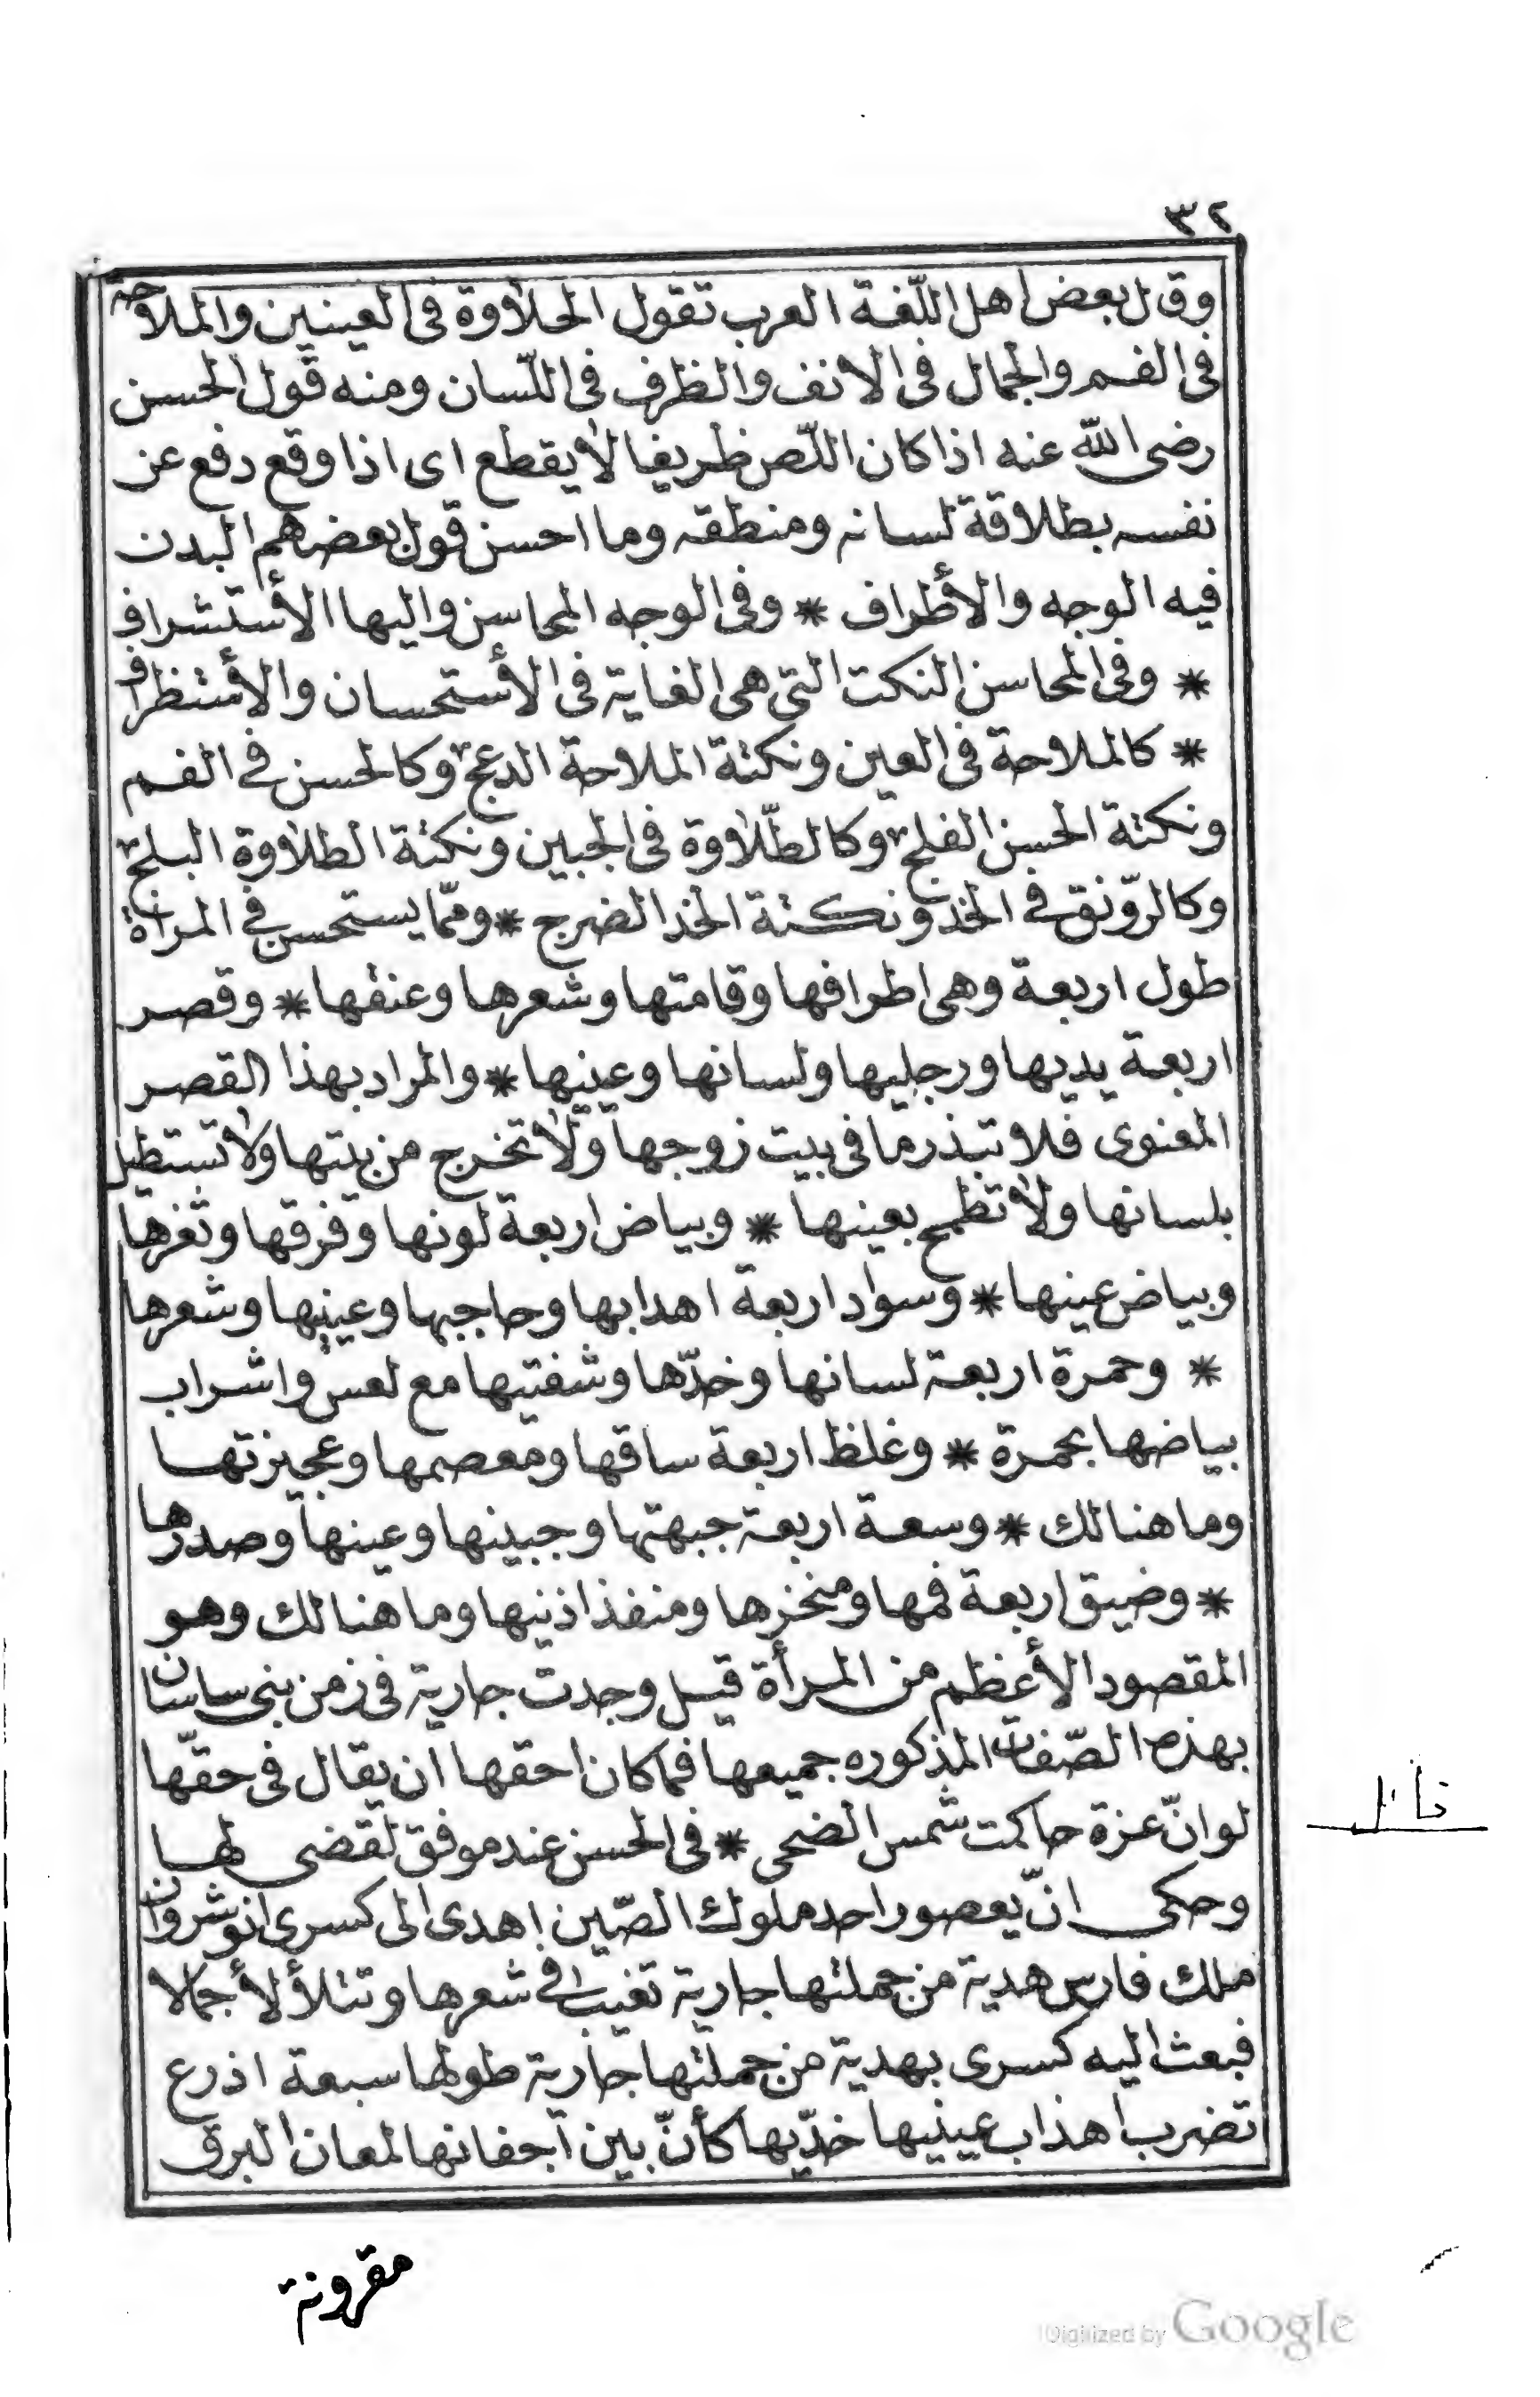 ٣٢
وقال بعض اهل اللّغة العرب تقول الحلاوة فى العينين والملاحة
فى الفم والجمال فى الانف والظرف فى اللّسان ومنه قول الحسن
رضى الله عنه اذا كان اللّص ظريفا لا يقطع اى اذا وقع دفع عن
نفسه بطلاقة لسانه ومنطقه وما احسن قول بعضهم البدن
فيه الوجه والأطراف * وفى الوجه المحاسن واليها الأستشراف
* وفى المحاسن النكت التى هى الغاية فى الأستحسان والأستظراف
* كالملاحة فى العين ونكتة الملاحة الدعج وكالحسن فى الفم
ونكتة الحسن الفلج وكالطّلاوة فى الجبين ونكتة الطلاوة البلج
وكالرّونق فى الخد ونكتة الخد الضرج * وممّا يستحسن فى المرأة
طول اربعة وهى اطرافها وقامتها وشعرها وعنقها * وقصر
اربعة يديها ورجليها ولسانها وعينها * والمراد بهذا القصر
المعنوى فلا تبذر ما فى بيت زوجها ولا تخرج من بيتها ولا تستطيل
بلسانها ولا تطمح بعينها * وبياض اربعة لونها وفرقها وثغرها
وبياض عينها * وسواد اربعة اهدابها وحاجبها وعينها وشعرها
* وحمرة اربعة لسانها وخدّها وشفتيها مع لعس واشراب
بياضها بحمرة * وغلظ اربعة ساقها ومعصمها وعجيزتها
وما هنالك * وسعة اربعة جبهتها وجبينها وعينها وصدرها
* وضيق اربعة فمها ومنخرها ومنفذ اذنيها وما هنالك وهو
المقصود الأعظم من المرأة قيل وجدت جارية فى زمن بنى ساسان
بهذه الصّفات المذكوره جميعها فما كان احقها ان يقال فى حقّها
لو انّ عزة حاكمت شمس الضحى * فى الحسن عند موفق لقضى لها
وحكى انّ يعصور احد ملوك الصّين اهدى الى كسرى انوشروان
ملك فارس هدية من جملتها جارية تغيب فى شعرها وتتلألأ جمالا
فبعث اليه كسرى بهدية من جملتها جارية طولها سبعة اذرع
تضرب اهذاب عينيها خدّيها كأنّ بين أجفانها لمعان البرق
مقرونة
Digitized by Google